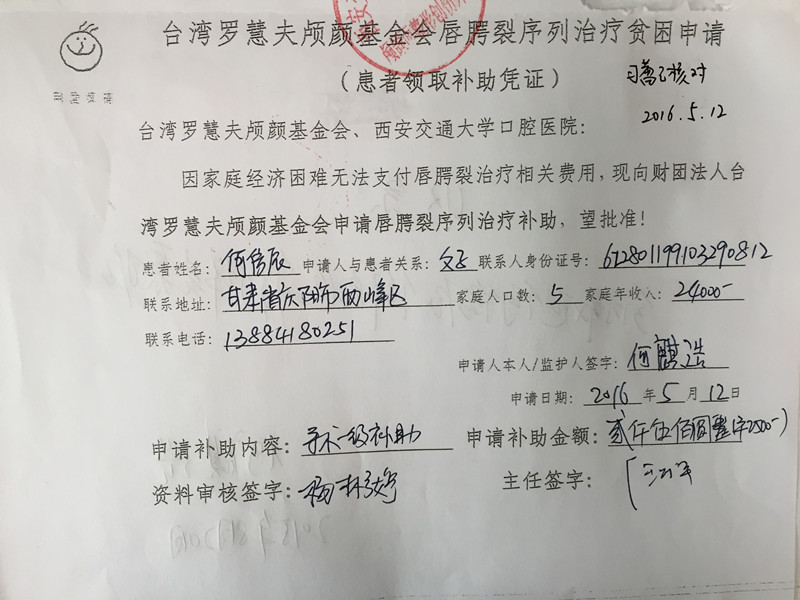 台湾罗慧夫颅颜基金会唇腭裂序列治疗贫困申请
（患者领取补助凭证）
核对
2016.5.12
台湾罗慧夫颅颜基金会、西安交通大学口腔医院：
因家庭经济困难无法支付唇腭裂治疗相关费用，现向财团法人台
湾罗慧夫颅颜基金会申请唇腭裂序列治疗补助，望批准！
患者姓名：何 辰 申请人与患者关系：父子 联系人身份证号：612801199103290812
联系地址：甘肃省庆阳市西峰区 家庭人口数：5 家庭年收入：24000-
联系电话：13884180251
申请人本人/监护人签字：何麒浩
申请日期：2016 年 5 月 12 日
申请补助内容：手术一级补助 申请补助金额：贰仟伍佰圆整(¥2500-)
资料审核签字：杨林 主任签字：